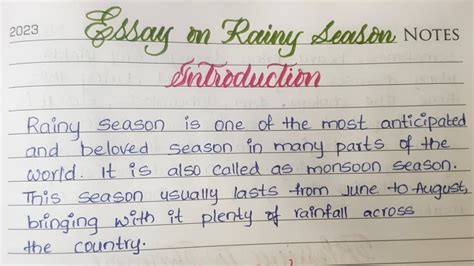 2023 Essay on Rainy Season NOTES
Introduction
Rainy season is one of the most anticipated
and beloved season in many parts of the
world. It is also called as monsoon season.
This season usually lasts from June to August,
bringing with it plenty of rainfall across
the country.